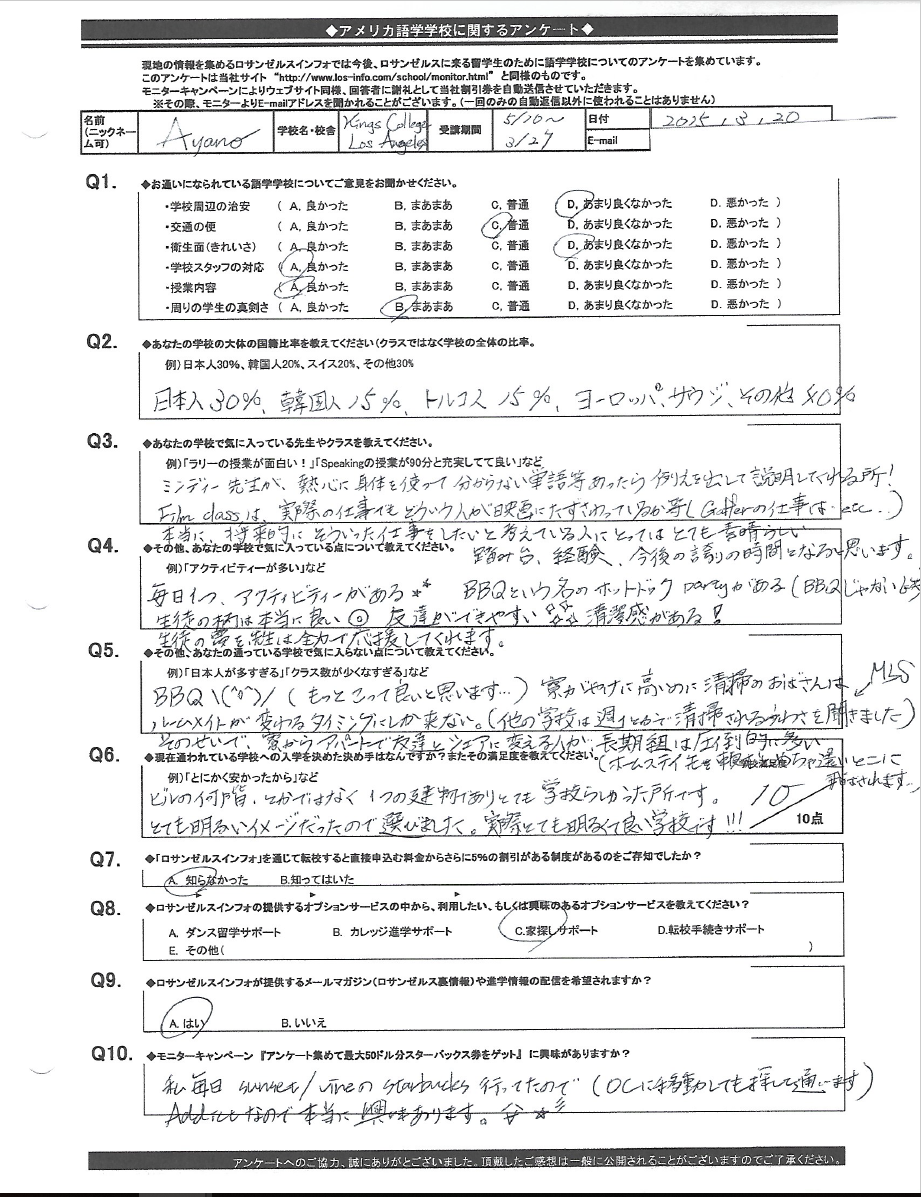 ◆アメリカ語学学校に関するアンケート◆
現地の情報を集めるロサンゼルスインフォでは今後、ロサンゼルスに来る留学生のために語学学校についてのアンケートを集めています。
このアンケートは当社サイト"http://www.los-info.com/school/monitor.html"と同様のものです。
モニターキャンペーンによりウェブサイト同様、回答者に謝礼として当社割引券を自動送信させていただきます。
※その際、モニターよりE-mailアドレスを聞かれることがございます。(一回のみの自動返信以外に使われることはありません)
名前(ニックネーム可) Ayano 学校名・校舎 Kings College Los Angeles 受講期間 5/20〜3/27 日付 2025, 3, 20
E-mail
Q1. ◆お通いになられている語学学校についてご意見をお聞かせください。
・学校周辺の治安 ( A, 良かった B, まあまあ C, 普通 D, あまり良くなかった D. 悪かった )
・交通の便 ( A, 良かった B, まあまあ C, 普通 D, あまり良くなかった D. 悪かった )
・衛生面(きれいさ) ( A, 良かった B, まあまあ C, 普通 D, あまり良くなかった D. 悪かった )
・学校スタッフの対応 ( A, 良かった B, まあまあ C, 普通 D, あまり良くなかった D. 悪かった )
・授業内容 ( A, 良かった B, まあまあ C, 普通 D, あまり良くなかった D. 悪かった )
・周りの学生の真剣さ ( A, 良かった B, まあまあ C, 普通 D, あまり良くなかった D. 悪かった )
Q2. ◆あなたの学校の大体の国籍比率を教えてください(クラスではなく学校の全体の比率。
例)日本人30%、韓国人20%、スイス20%、その他30%
日本人30%、韓国人15%、トルコ人15%、ヨーロッパ、サウジ、その他40%
Q3. ◆あなたの学校で気に入っている先生やクラスを教えてください。
例)「ラリーの授業が面白い!」「Speakingの授業が90分と充実してて良い」など
ミンディー先生が、熱心に身体を使って分からない単語等あったら例えを出して説明してくれる所!
Film classは、実際の仕事でもどういう人が映画にたずさわっているか等(Gafferの仕事は…etc…)
本当に、将来的にそういった仕事をしたいと考えている人にとってはとても素晴らしい
踏み台、経験、今後の誇りの時間となると思います。
Q4. ◆その他、あなたの学校で気に入っている点について教えてください。
例)「アクティビティーが多い」など
毎日1つ、アクティビティーがある BBQという名のホットドック partyがある(BBQじゃない
生徒の柄は本当に良い◎ 友達ができやすい☆☆ 清潔感がある!
生徒の夢を先生は全力で応援してくれます。
Q5. ◆その他、あなたの通っている学校で気に入らない点について教えてください。
例)「日本人が多すぎる」「クラス数が少なくすぎる」など
BBQ\(^o^)/(もっとこって良いと思います…) 寮がやけに高いのに清掃のおばさんは
ルームメイトが変わるタイミングにしか来ない。(他の学校は週1とかで清掃されるうわさを聞きました)
そのせいで、寮からアパートで友達とシェアに変える人が、長期組は圧倒的に多い
Q6. ◆現在通われている学校への入学を決めた決め手はなんですか?またその満足度を教えてください。
例)「とにかく安かったから」など
ビルの何階、とかではなく1つの建物でありとても学校らしかった所です。
とても明るいイメージだったので選びました。実際とても明るくて良い学校です!!!
10/10点
Q7. ◆「ロサンゼルスインフォ」を通じて転校すると直接申込む料金からさらに5%の割引がある制度があるのをご存知でしたか?
A. 知らなかった B.知ってはいた
Q8. ◆ロサンゼルスインフォの提供するオプションサービスの中から、利用したい、もしくは興味のあるオプションサービスを教えてください?
A. ダンス留学サポート B. カレッジ進学サポート C.家探しサポート D.転校手続きサポート
E. その他( )
Q9. ◆ロサンゼルスインフォが提供するメールマガジン(ロサンゼルス裏情報)や進学情報の配信を希望されますか?
A.はい B.いいえ
Q10. ◆モニターキャンペーン『アンケート集めて最大50ドル分スターバックス券をゲット』に興味がありますか?
私毎日 sunset/vineの starbucks 行ってたので(OCに移動しても探して通います)
Addictなので本当に興味あります。☆★
アンケートへのご協力、誠にありがとございました。頂戴したご感想は一般に公開されることがございますのでご了承ください。